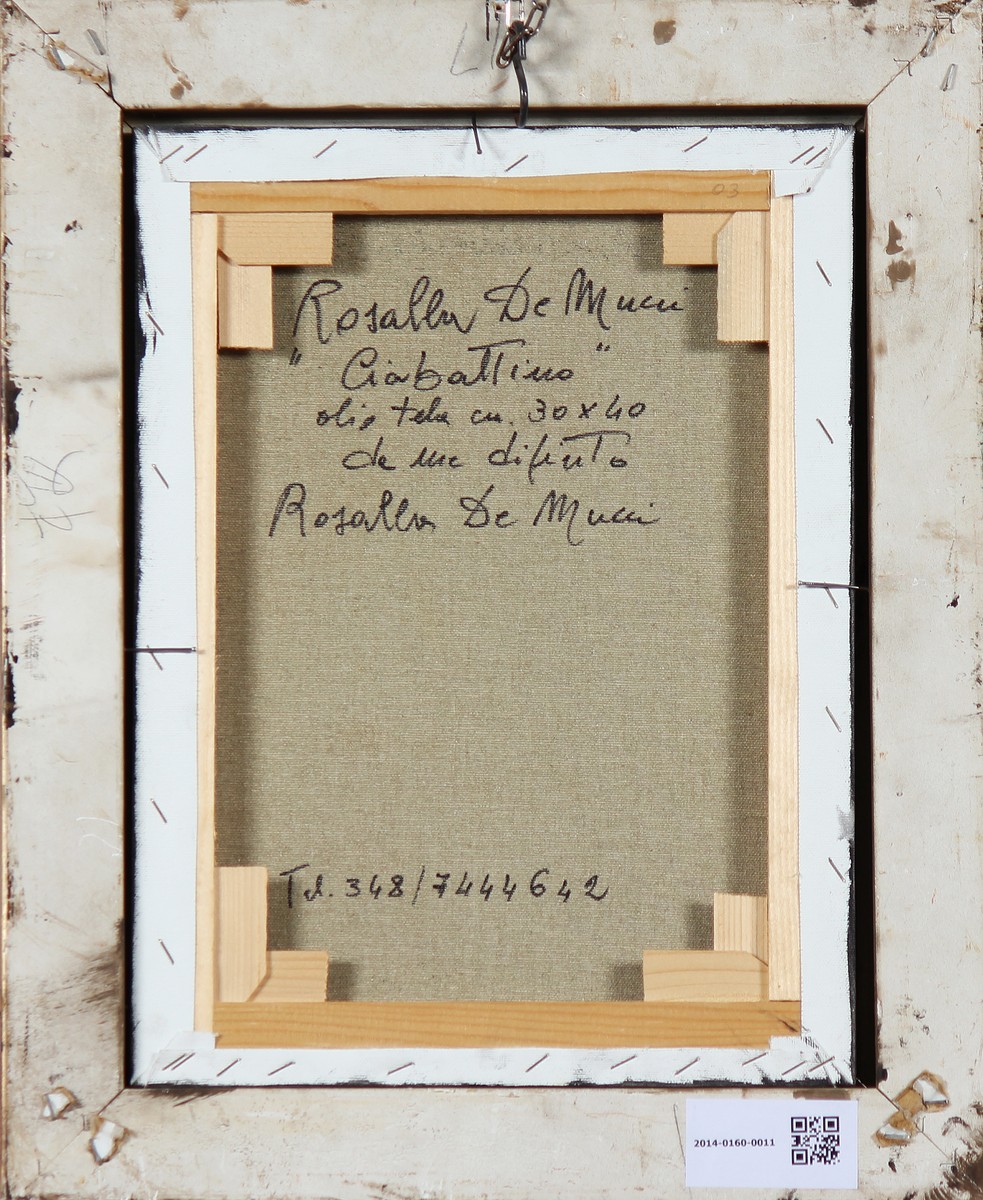 03
Rosalba De Mucci
" Ciabattino "
olio tela cm. 30x40
da me dipinto
Rosalba De Mucci
Tel. 348/7444642
2014-0160-0011